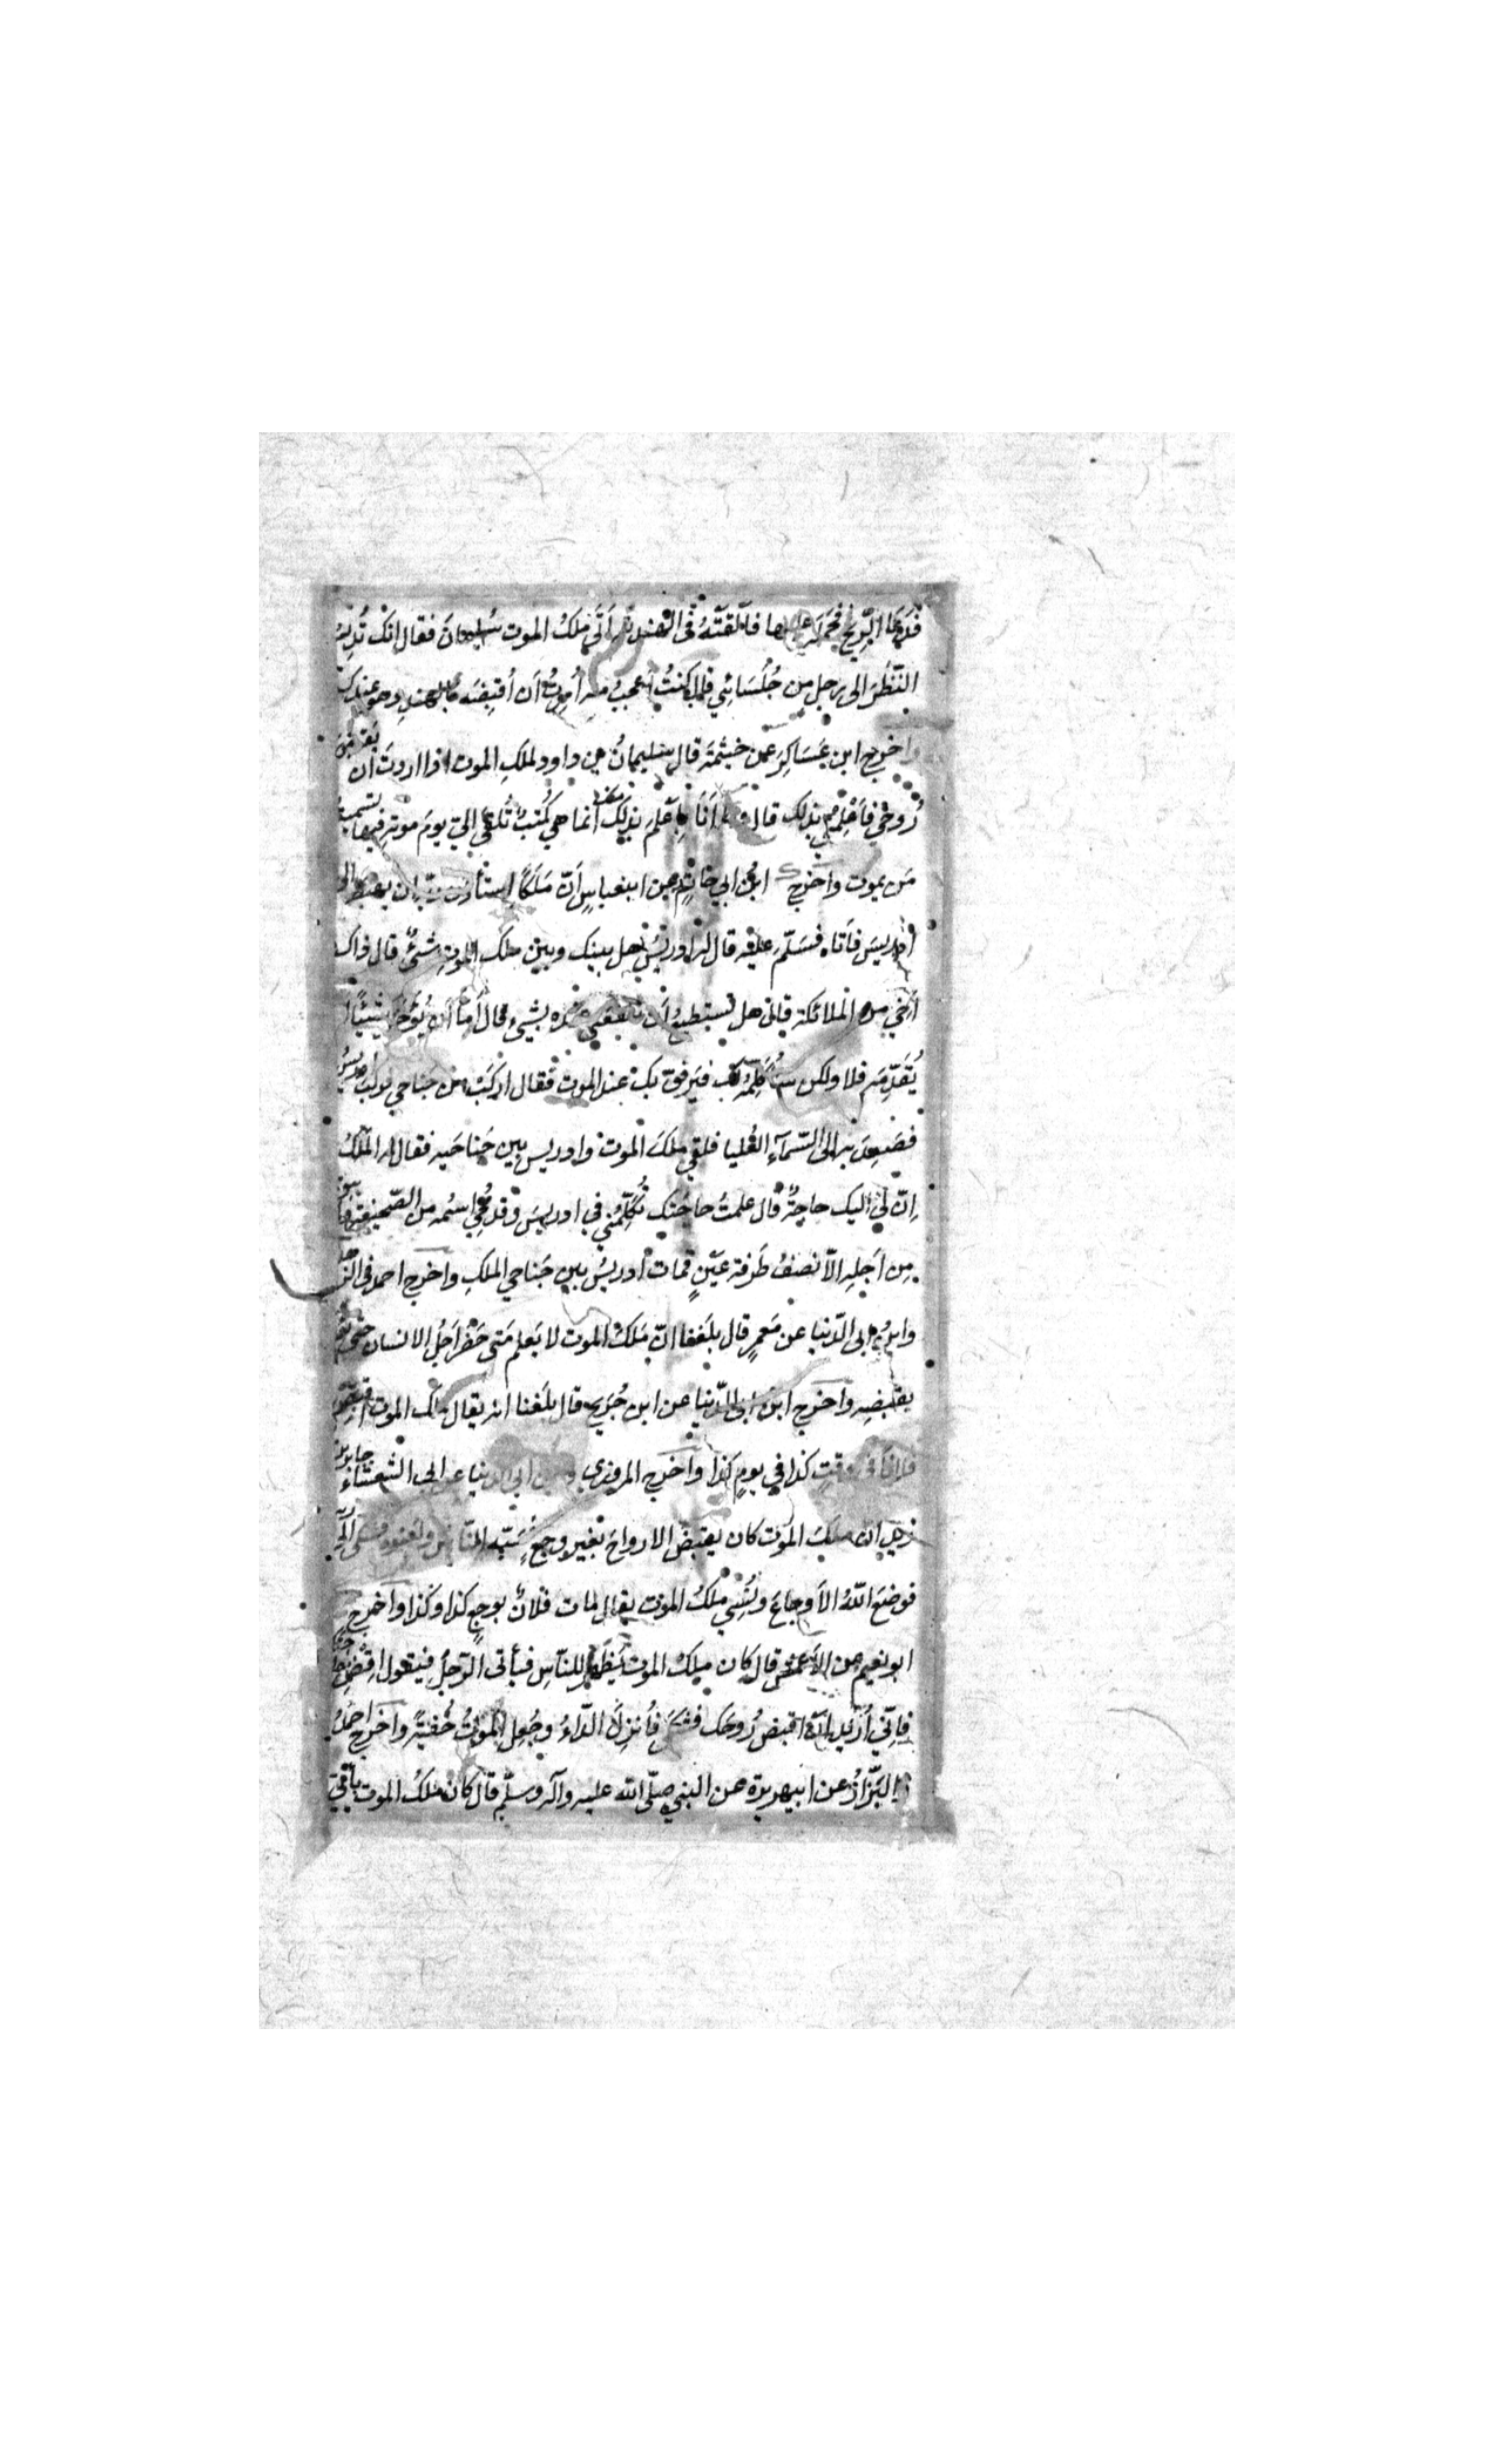 فدعا الرّيح فحمله عليها فألقته في الهند ثم أتى ملكُ الموت سُليمانَ فقال انّك تُديمُ
النّظرَ الى رجل من جُلَسَائي قال كنتُ أعجبُ منه أُمِرتُ أن أقبِضَه بالهند وهو عندك
واخرج ابن عَسَاكِرَ عن خيثمةَ قال سليمانُ بن داود لملكِ الموت اذا اردتَ ان تقبض
رُوحي فأَعْلِمني بذلك قال ما أنَا بأعلم بذلك منك انما هي كُتبٌ تُلقى اليّ يومَ موته فيها تسميةُ
مَن يموت واخرج ابن ابي حاتم عن ابنعباسٍ أنّ مَلَكًا استأذن ربّه ان يهبط الى
ادريسَ فأتاه فسَلّم عليه قال له ادريسُ هل بينك وبين ملك الموت شئٌ قال ذاك
أخي من الملائكة قال هل تستطيع أن تنفعني عنده بشيءٍ قال أمّا أن يُؤخّرَ شيئًا او
يُقَدِّمَه فلا ولكن سأُكَلِّمُه لك فيَرفق بك عند الموت فقال اركَبْ بين جناحي فركب ادريسُ
فصَعِدَ به الى السّمآءِ العُليا فلقي ملَكَ الموت وادريس بين جَناحَيه فقال له الملَكُ
اِنّ لي اليك حاجةً قال علمتُ حاجتَك تُكلِّمُني في ادريسَ وقد مُحِيَ اسمُه من الصّحيفة فلم يبق
مِن اَجَلِه الّا نصفُ طَرفة عَيْنٍ فمات ادريسُ بين جَناحي الملكِ واخرج احمد في الزّهد
وابن ابي الدّنيا عن مَعمرٍ قال بلَغنا انّ مَلَكَ الموت لا يَعلم مَتى حَضَر أجَلُ الانسان حتى يُؤمَر
بقبضِه واخرج ابن ابي الدّنيا عن ابن جُرَيجٍ قال بلَغنا انه يقال لملك الموت اقبِض
فلانًا في وقتِ كذا في يومِ كذا واخرج المروزي وابن ابي الدنيا عن ابي الشعشاء جابر بن
زيد ان ملَكَ الموت كان يقبضُ الارواحَ بغير وجعٍ فسَبّه النّاس ولعنوه فشكى الى
فوضعَ اللّهُ الأوجاعَ ونُسِيَ ملكُ الموت يقال مات فلانٌ بوجعِ كذا وكذا واخرج
ابو نعيم عن الأعمش قال كان ملكُ الموت يَظهَرُ للنّاسِ فيأتى الرّجلَ فيقول اقضِ حاجتَك
فاِنّي أُريد أن اقبض رُوحَك فشكى فأُنزِلَ الدّاءُ وجُعِل الموتُ خُفيةً واخرج احمدُ
و البَزّازُ عن ابيهريرة عن النبي صلّى الله عليه وآله وسلّم قال كان ملَكُ الموت يأتي